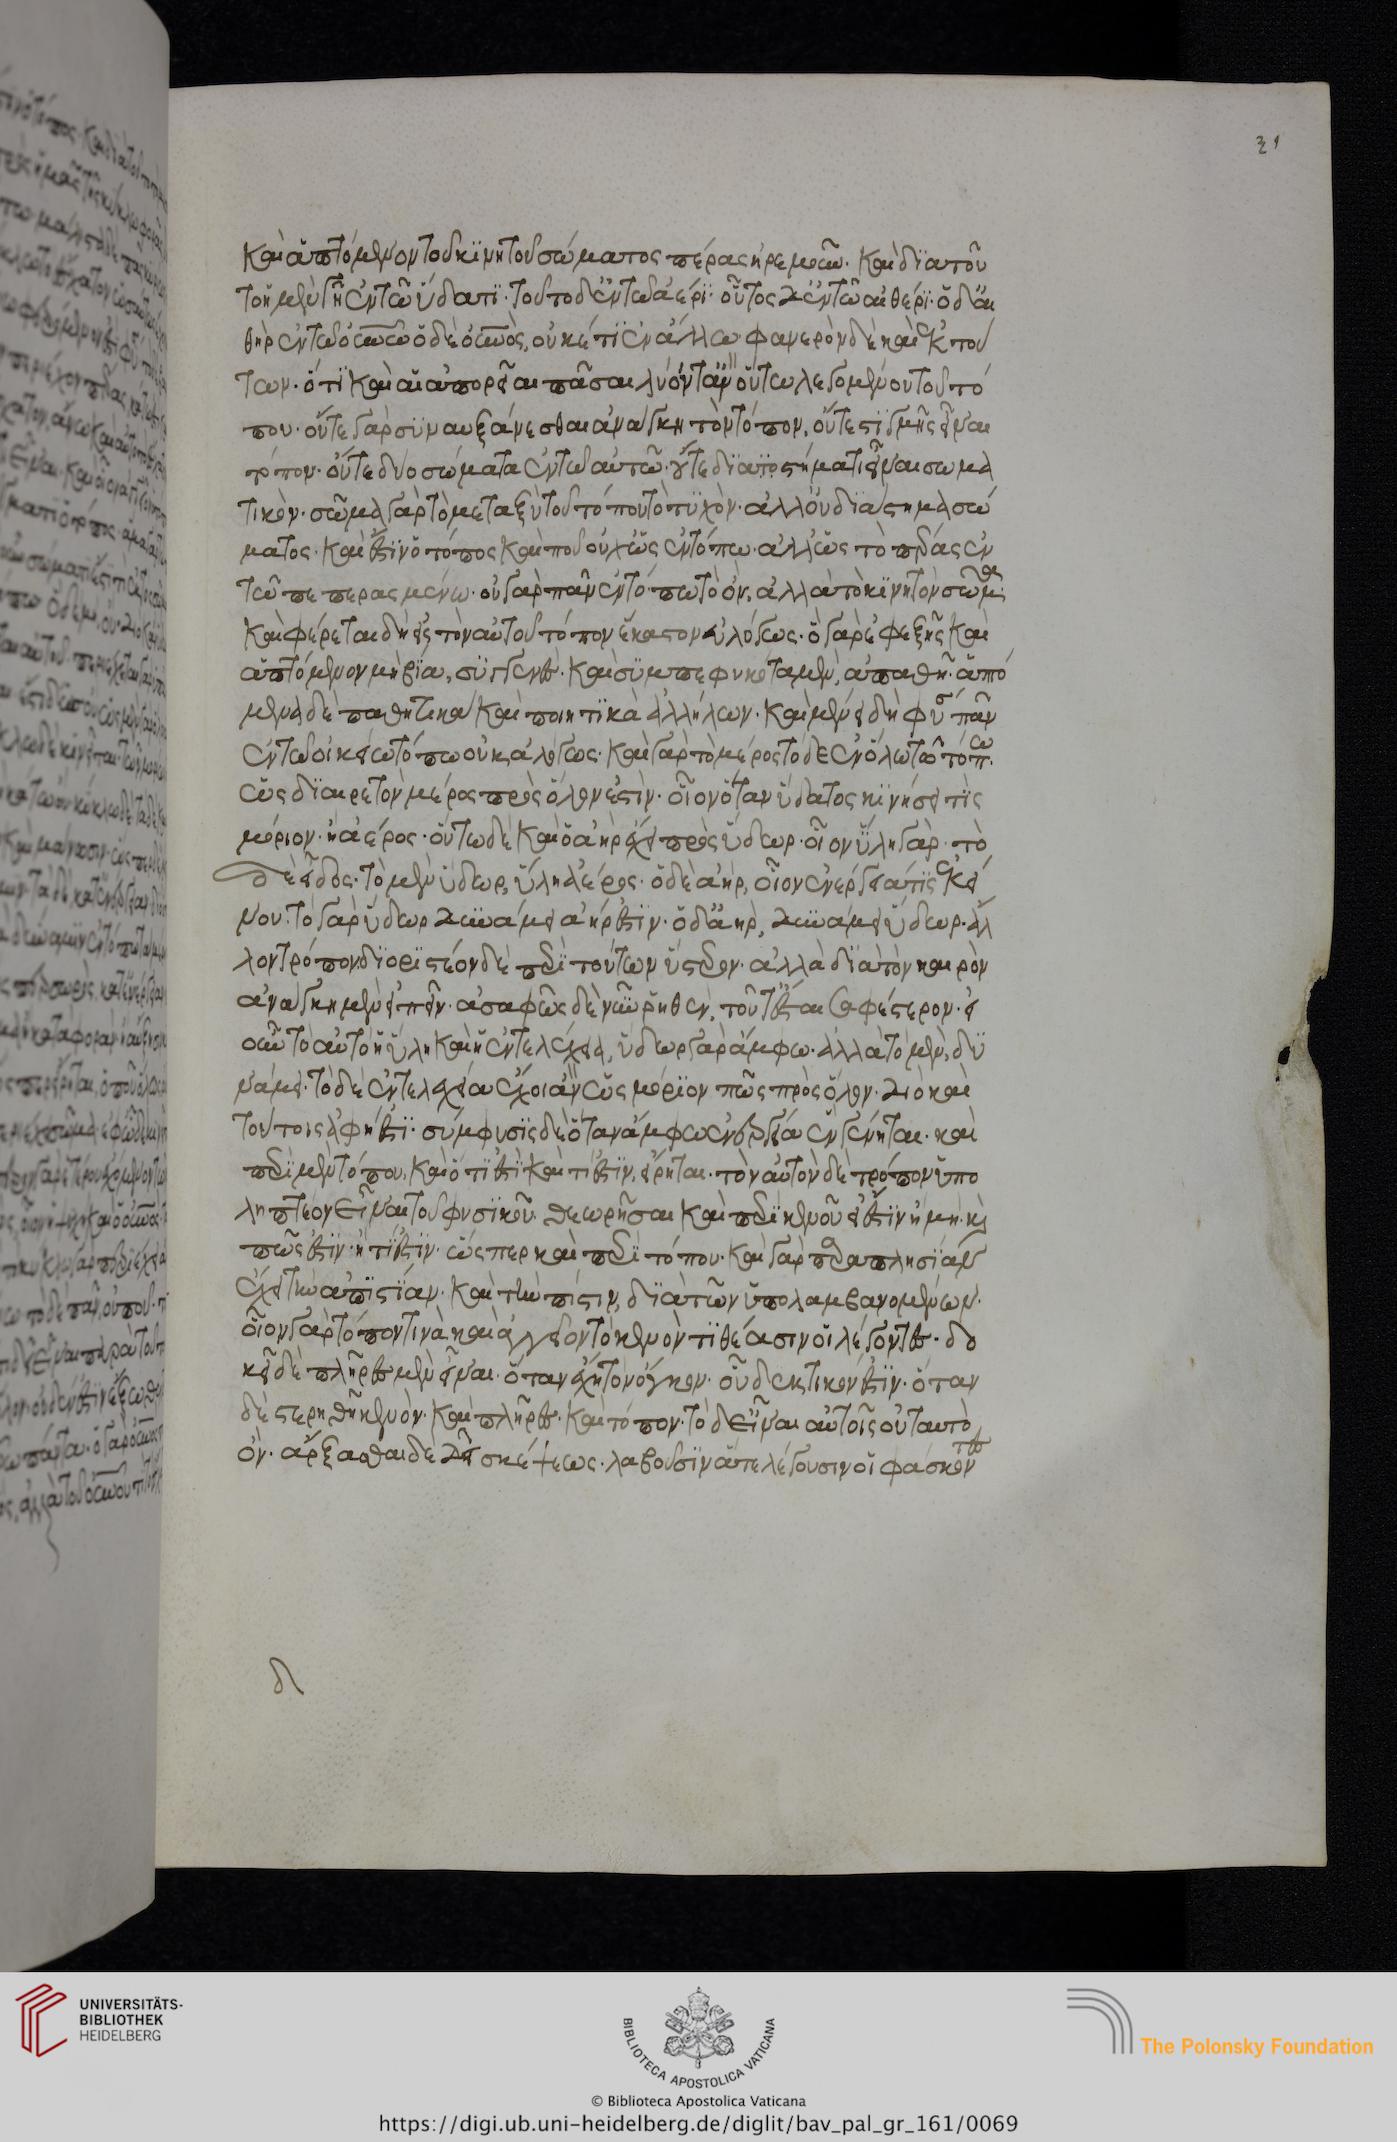 καὶ ἁπτόμενον τοῦ κινητοῦ σώματος πέρας ἠρεμοῦν. καὶ διὰ τοῦ
το ἡ μὲν γῆ ἐν τῶ ὕδατι· τοῦτο δ' ἐν τῶ ἀέρι· οὗτος δ' ἐν τῶ αἰθέρι· ὁ δ' αἰ
θὴρ ἐν τῶ οὐνῶ· ὁ δὲ οὐνὸς, οὐκέτι ἐν ἄλλω· φανερὸν δὲ καὶ ἐκ τού
των· ὅτι καὶ αἱ ἀπορεῖαι πᾶσαι λύοιντ' ἂν οὕτω λεγομένου τοῦ τό
που· οὔτε γὰρ συναυξάνεσθαι ἀνάγκη τὸν τόπον, οὔτε στιγμῆς εἶναι
τόπον· οὔτε δύο σώματα ἐν τῶ αὐτῶ· οὔτε διάστημά τι εἶναι σωμα
τικόν· σῶμα γὰρ τὸ μεταξὺ τοῦ τόπου τὸ τυχὸν· ἀλλ' οὐ διάστημα σώ
ματος· καὶ ἔστιν ὁ τόπος καὶ ποῦ οὐχ ὡς ἐν τόπω· ἀλλ' ὡς τὸ πέρας ἐν
τῶ πεπερασμένω· οὐ γὰρ πᾶν ἐν τόπω τὸ ὄν, ἀλλὰ τὸ κινητὸν σῶμα
καὶ φέρεται δὴ εἰς τὸν αὑτοῦ τόπον ἕκαστον εὐλόγως· ὃ γὰρ ἐφεξῆς καὶ
ἁπτόμενον μὴ βία, συγγενές· καὶ συμπεφυκότα μὲν, ἀπαθῆ· ἁπτό
μενα δὲ παθητικὰ καὶ ποιητικὰ ἀλλήλων· καὶ μένει δὴ φύσει πᾶν
ἐν τῶ οἰκείω τόπω οὐκ ἀλόγως· καὶ γὰρ τὸ μέρος τόδε ἐν ὅλω τῶ τόπω
ὡς διαιρετὸν μέρος πρὸς ὅλον ἐστίν· οἷον ὅταν ὕδατος κινήσει τὶς
μόριον· ἢ ἀέρος· οὕτω δὲ καὶ ὁ ἀὴρ ἔχει πρὸς ὕδωρ· οἷον ὕλη γὰρ· τὸ
δὲ εἶδος· τὸ μὲν ὕδωρ, ὕλη ἀέρος· ὁ δὲ ἀὴρ, οἷον ἐνέργειά τις ἐκεί
νου· τὸ γὰρ ὕδωρ δυνάμει ἀήρ ἐστιν· ὁ δ' ἀὴρ, δυνάμει ὕδωρ· ἄλ
λον τρόπον διοριστέον δὲ περὶ τούτων ὕστερον· ἀλλὰ διὰ τὸν καιρὸν
ἀνάγκη μὲν εἰπεῖν· ἀσαφῶς δὲ νῦν ῥηθὲν, τότ' ἔσται σαφέστερον· εἰ
οὖν τὸ αὐτὸ ἡ ὕλη καὶ ἡ ἐντελέχεια, ὕδωρ γὰρ ἄμφω· ἀλλὰ τὸ μὲν, δυ
νάμει· τὸ δὲ ἐντελεχεία ἔχοι ἂν ὡς μόριόν πως πρὸς ὅλον· διὸ καὶ
τούτοις ἁφή ἐστι· σύμφυσις δὲ ὅταν ἄμφω ἐνεργεία ἓν γένηται· καὶ
περὶ μὲν τόπου, καὶ ὅτι ἐστὶ καὶ τί ἐστιν, εἴρηται· τὸν αὐτὸν δὲ τρόπον ὑπο
ληπτέον εἶναι τοῦ φυσικοῦ θεωρῆσαι καὶ περὶ κενοῦ εἰ ἔστιν ἢ μή· καὶ
πῶς ἔστιν· ἢ τί ἐστιν· ὥσπερ καὶ περὶ τόπου· καὶ γὰρ παραπλησίαν
ἔχει τὴν ἀπιστίαν· καὶ τὴν πίστιν, διὰ τῶν ὑπολαμβανομένων·
οἷον γὰρ τόπον τινὰ καὶ ἀγγεῖον τὸ κενὸν τιθέασιν οἱ λέγοντες· δο
κεῖ δὲ πλῆρες μὲν εἶναι· ὅταν ἔχη τὸν ὄγκον· οὗ δεκτικόν ἐστιν· ὅταν
δὲ στερηθῆ κενὸν· καὶ πλῆρες· καὶ τόπον· τὸ δ' εἶναι αὐτοῖς οὐ ταυτὸ
ὄν· ἄρξασθαι δὲ δεῖ σκέψεως· λαβοῦσιν ἅ τε λέγουσιν οἱ φάσκοντες